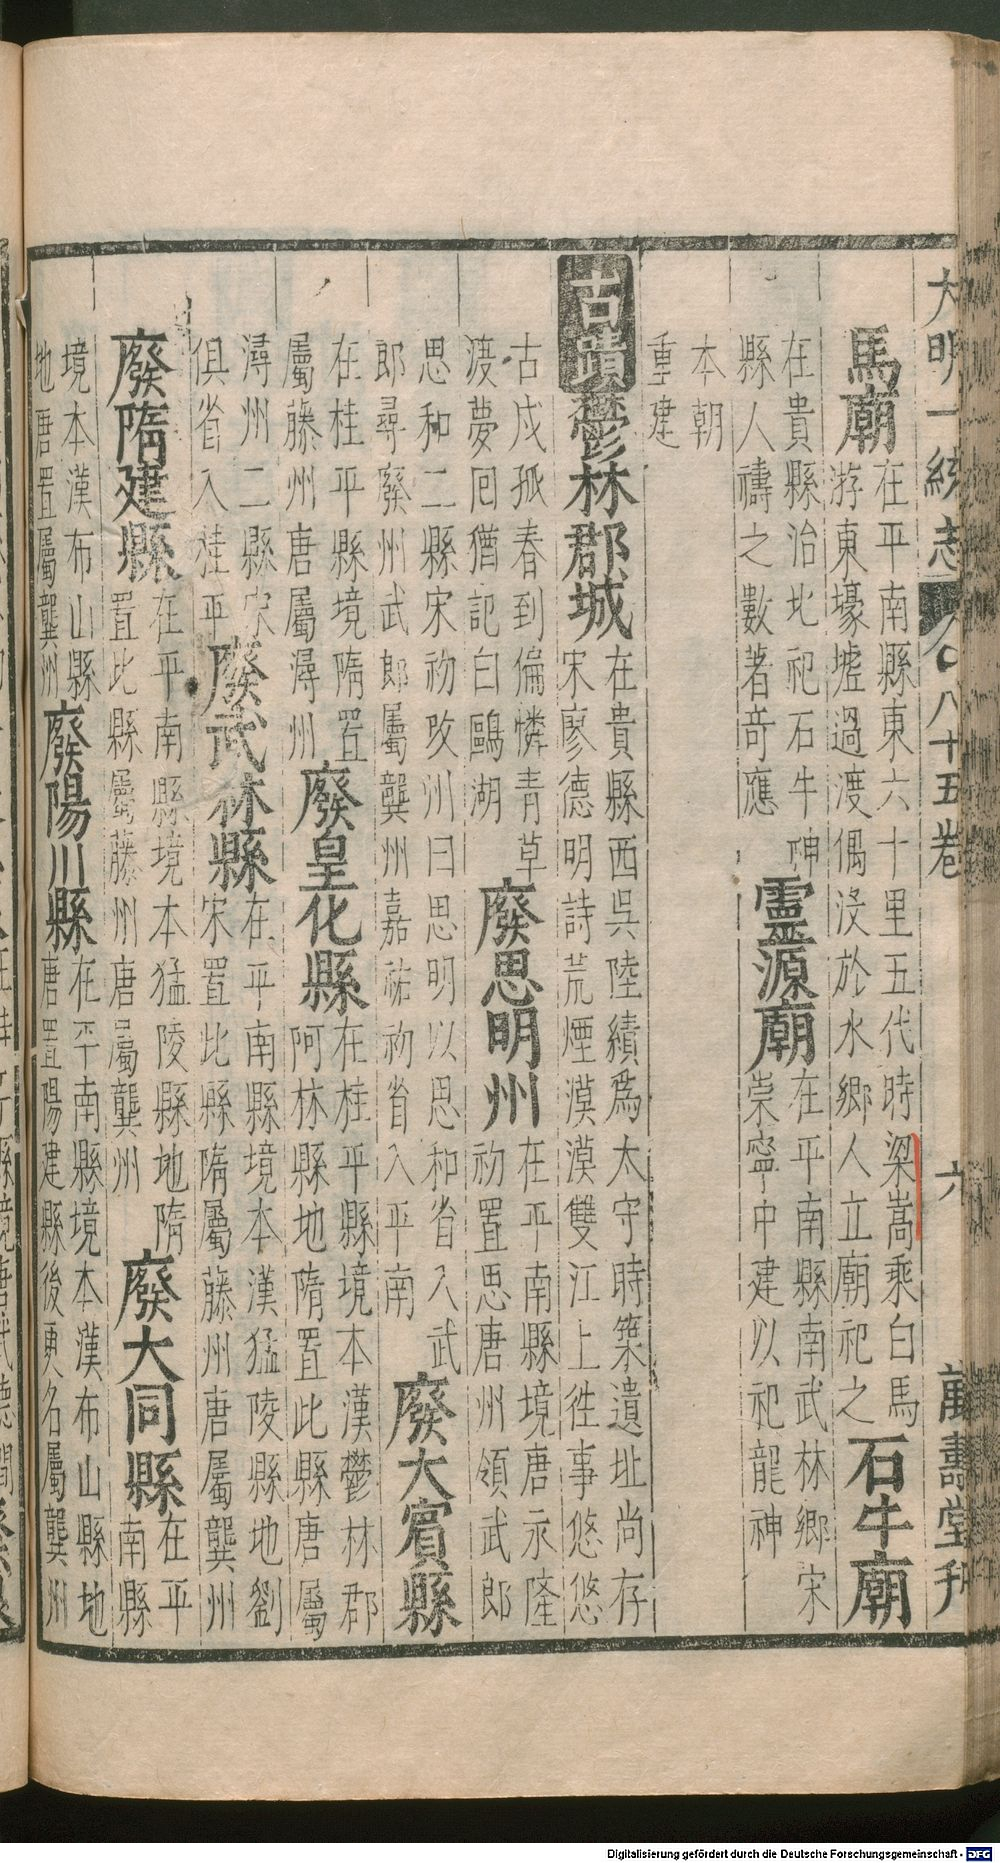 大明一統志 八十五卷 六 萬壽堂刋
馬廟
在平南縣東六十里五代時梁嵩乘白馬
游東壕墟過渡偶沒於水鄉人立廟祀之
石牛廟
在貴縣治北祀石牛神
縣人禱之數著奇應
靈源廟
在平南縣南武林鄉宋
崇寧中建以祀龍神
本朝
重建
古蹟
鬱林郡城
在貴縣西吳陸績為太守時築遺址尚存
宋廖德明詩荒煙漠漠雙江上徃事悠悠
古戍孤春到偏憐青草
渡夢囘猶記白鷗湖
廢思明州
在平南縣境唐永隆
初置思唐州領武郎
思和二縣宋初改州曰思明以思和省入武
郎尋廢州武郎屬龔州嘉祐初省入平南
廢大賓縣
在桂平縣境隋置
屬藤州唐屬潯州
廢皇化縣
在桂平縣境本漢鬱林郡
阿林縣地隋置此縣唐屬
潯州二縣宋
俱省入桂平
廢武林縣
在平南縣境本漢猛陵縣地劉
宋置此縣隋屬藤州唐屬龔州
廢隋建縣
在平南縣境本猛陵縣地隋
置此縣屬藤州唐屬龔州
廢大同縣
在平
南縣
境本漢布山縣
地唐置屬龔州
廢陽川縣
在平南縣境本漢布山縣地
唐置陽建縣後更名屬龔州
Digitalisierung gefördert durch die Deutsche Forschungsgemeinschaft - DFG